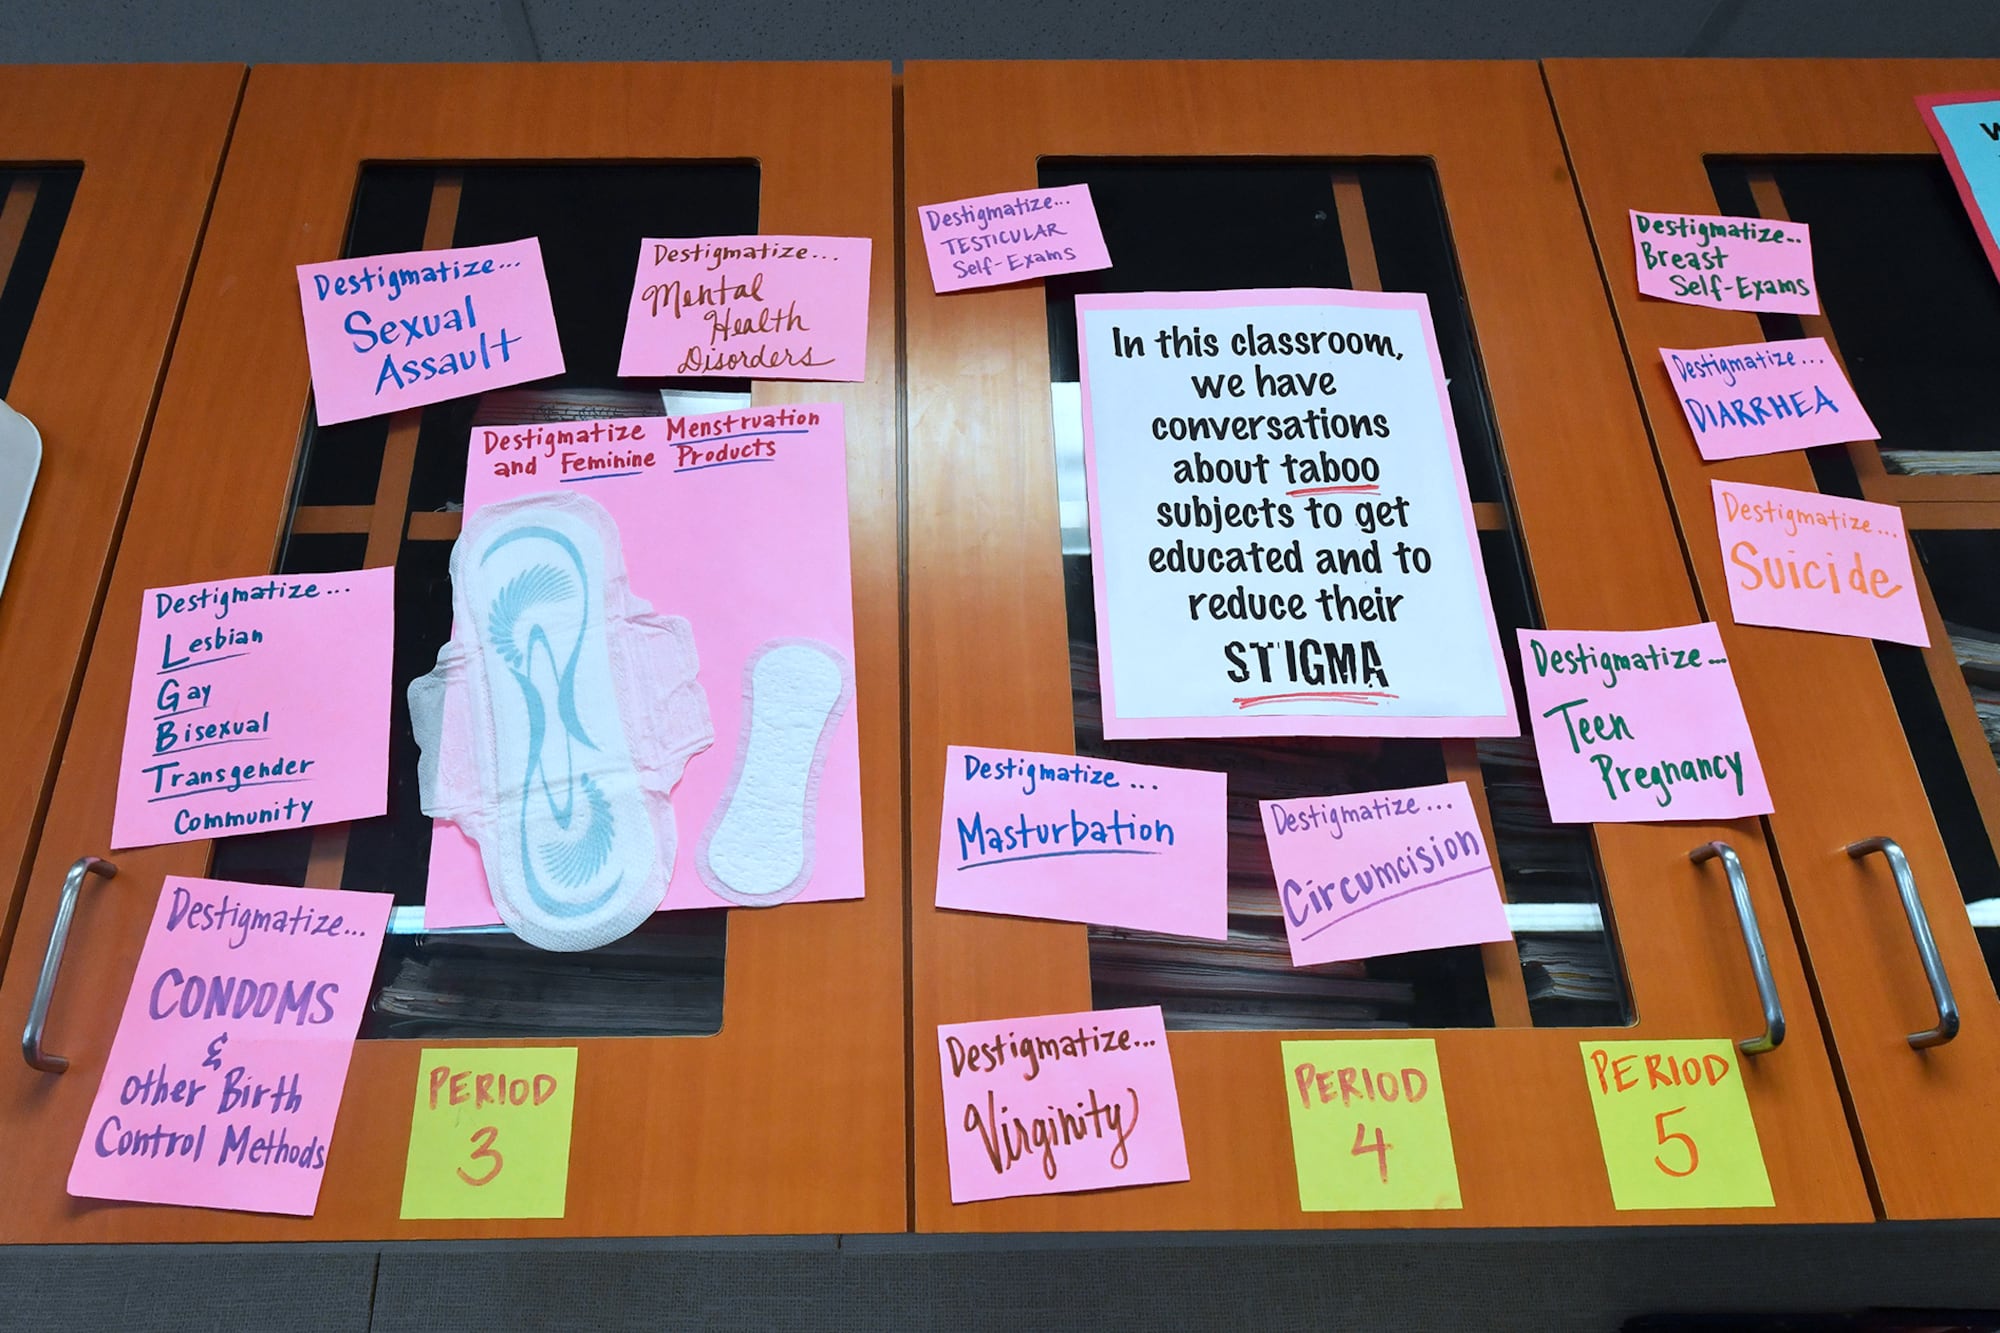 Destigmatize...
Sexual
Assault
Destigmatize...
Mental
Health
Disorders
Destigmatize Menstruation
and Feminine Products
Destigmatize...
Lesbian
Gay
Bisexual
Transgender
Community
Destigmatize...
CONDOMS
&
other Birth
Control Methods
PERIOD
3
Destigmatize...
TESTICULAR
Self-Exams
In this classroom,
we have
conversations
about taboo
subjects to get
educated and to
reduce their
STIGMA
Destigmatize...
Masturbation
Destigmatize...
Circumcision
Destigmatize...
Virginity
PERIOD
4
Destigmatize..
Breast
Self-Exams
Destigmatize...
DIARRHEA
Destigmatize...
Suicide
Destigmatize...
Teen
Pregnancy
PERIOD
5